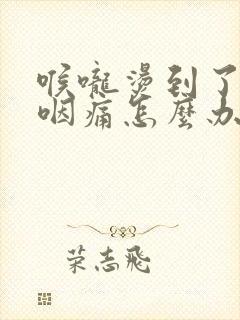 喉嚨燙到了
咽痛怎麼办
荣志飛